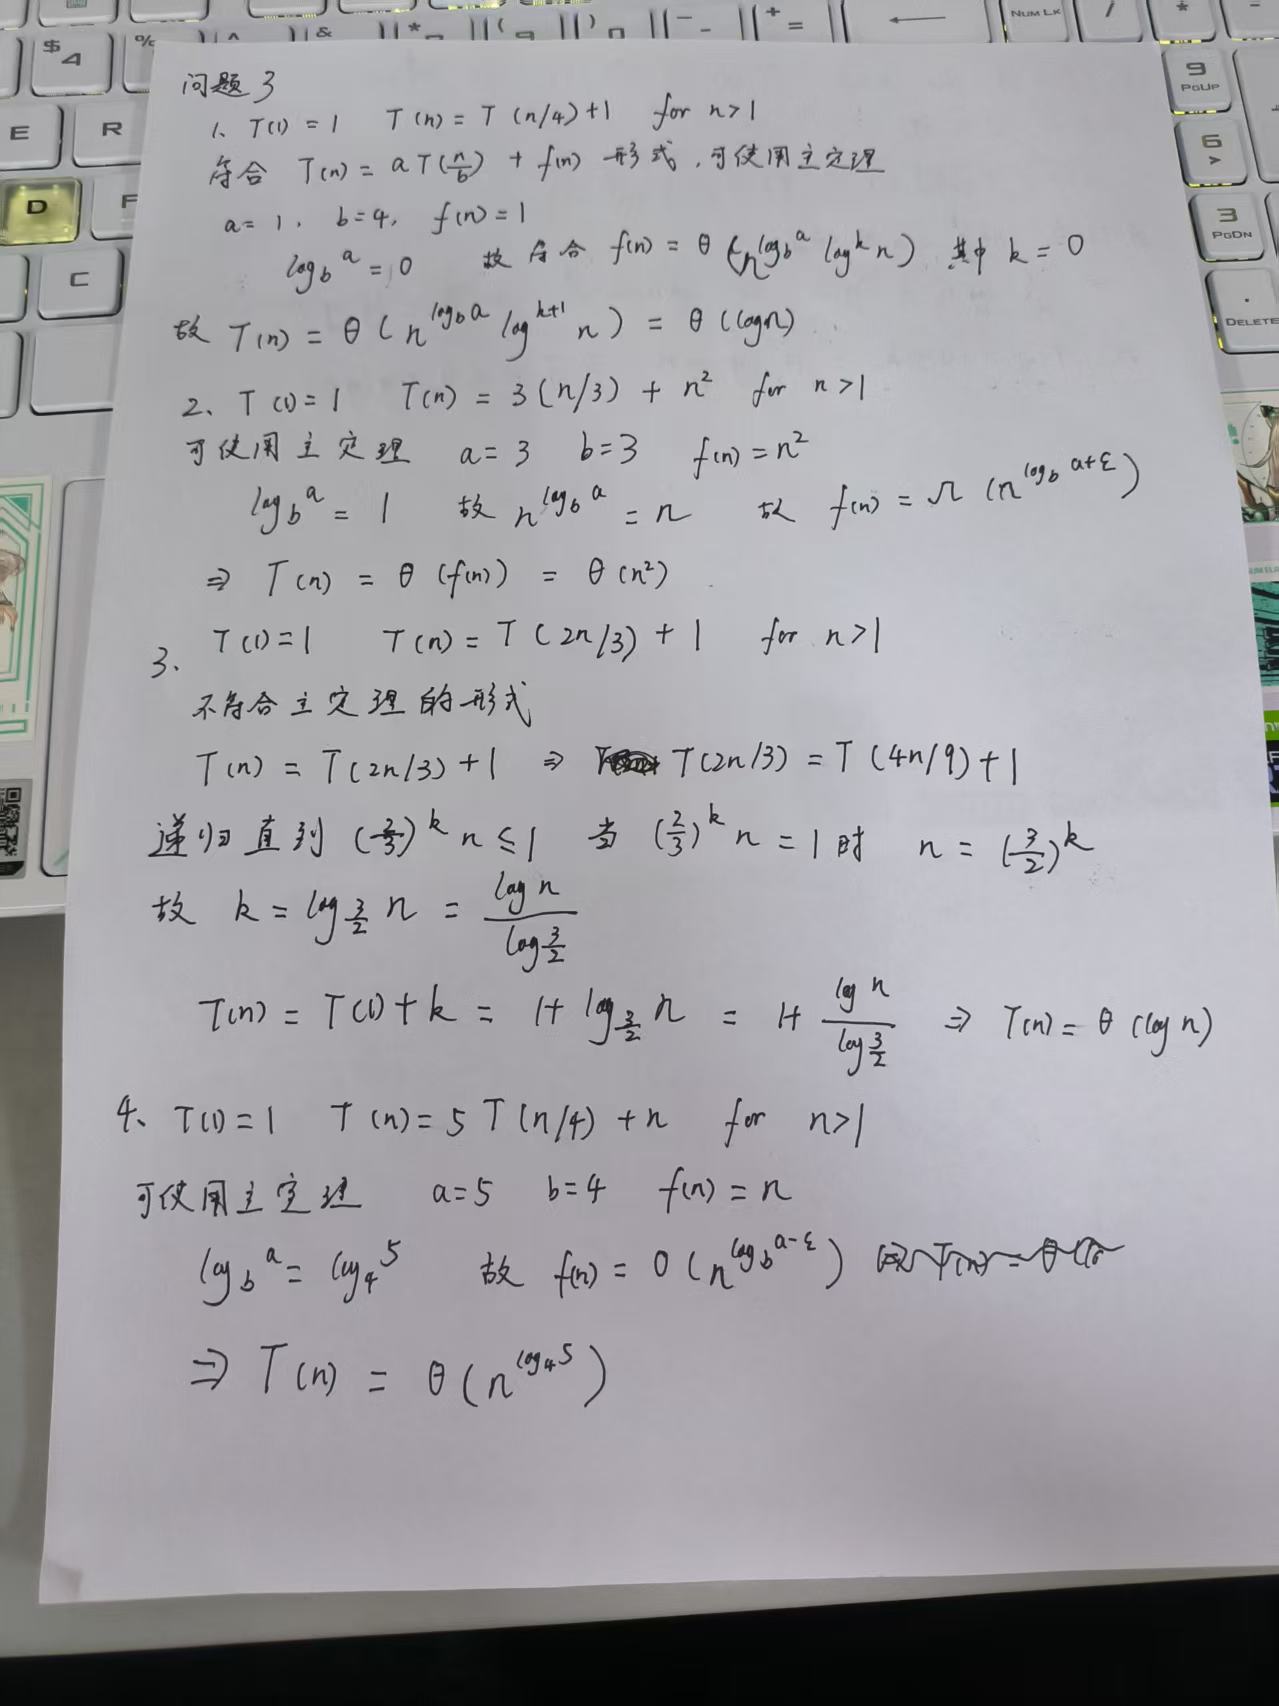 问题3
1、T(1) = 1 T(n) = T(n/4)+1 for n>1
符合 T(n) = aT(n/b) + f(n) 形式,可使用主定理
a=1, b=4, f(n)=1
log_b^a = 0 故符合 f(n) = θ(n^{log_b a} log^k n) 其中 k = 0
故 T(n) = θ(n^{log_b a} log^{k+1} n) = θ(logn)
2、T(1)=1 T(n) = 3(n/3) + n² for n>1
可使用主定理 a=3 b=3 f(n)=n²
log_b^a = 1 故 n^{log_b a} = n 故 f(n) = Ω(n^{log_b a+ε})
⇒ T(n) = θ(f(n)) = θ(n²)
3、T(1)=1 T(n) = T(2n/3) + 1 for n>1
不符合主定理的形式
T(n) = T(2n/3)+1 ⇒ T(2n/3) = T(4n/9)+1
递归直到 (2/3)^k n ≤ 1 当 (2/3)^k n = 1时 n = (3/2)^k
故 k = log_{3/2} n = log n / log 3/2
T(n) = T(1)+k = 1+ log_{3/2} n = 1+ lg n / log 3/2 ⇒ T(n) = θ(log n)
4、T(1)=1 T(n)=5T(n/4)+n for n>1
可使用主定理 a=5 b=4 f(n)=n
log_b^a = log_4^5 故 f(n) = O(n^{log_b a-ε})
⇒ T(n) = θ(n^{log_4 5})
$ 4
%
^
&
*
(9
)0
- -
+ =
←
NUM LK
/
*
-
E
R
D
F
C
9
PGUP
6
>
3
PGDN
.
DELETE